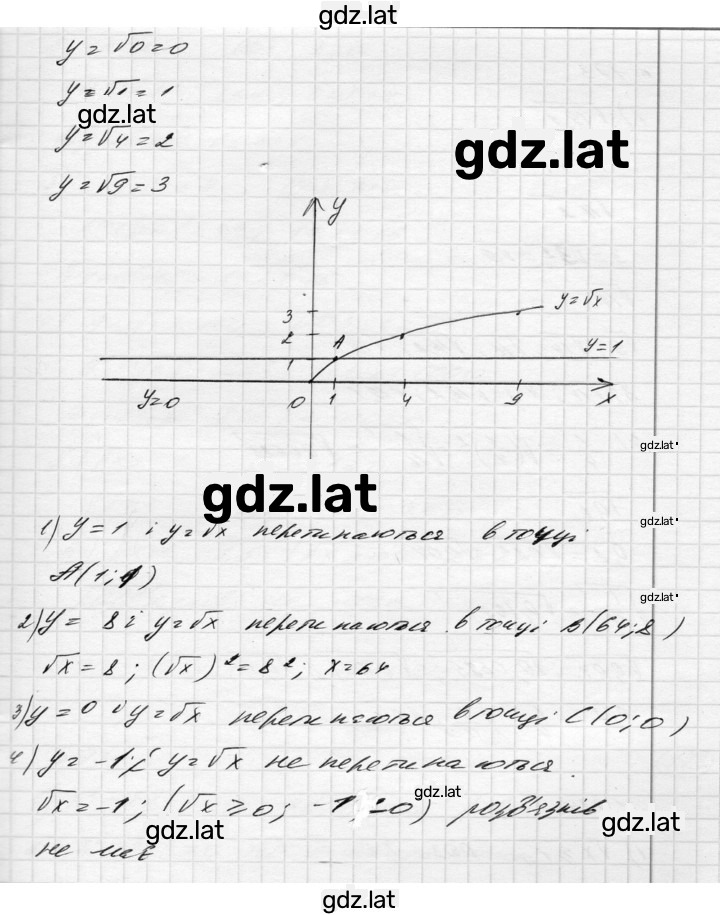 gdz.lat
y = √0 = 0
y = √1 = 1
gdz.lat
y = √4 = 2
gdz.lat
y = √9 = 3
y
3
y = √x
2
A
y = 1
1
y = 0
0 1 4 9 x
gdz.lat
gdz.lat
1) y = 1 і y = √x перетинаються в точці
gdz.lat
A(1; 1)
gdz.lat
2) y = 8 і y = √x перетинаються в точці B(64; 8)
√x = 8; (√x)² = 8²; x = 64
3) y = 0 і y = √x перетинаються в точці C(0; 0)
4) y = -1 і y = √x не перетинаються
gdz.lat
√x = -1; (√x ≥ 0; -1 0) розв'язків
gdz.lat
gdz.lat
не має
gdz.lat